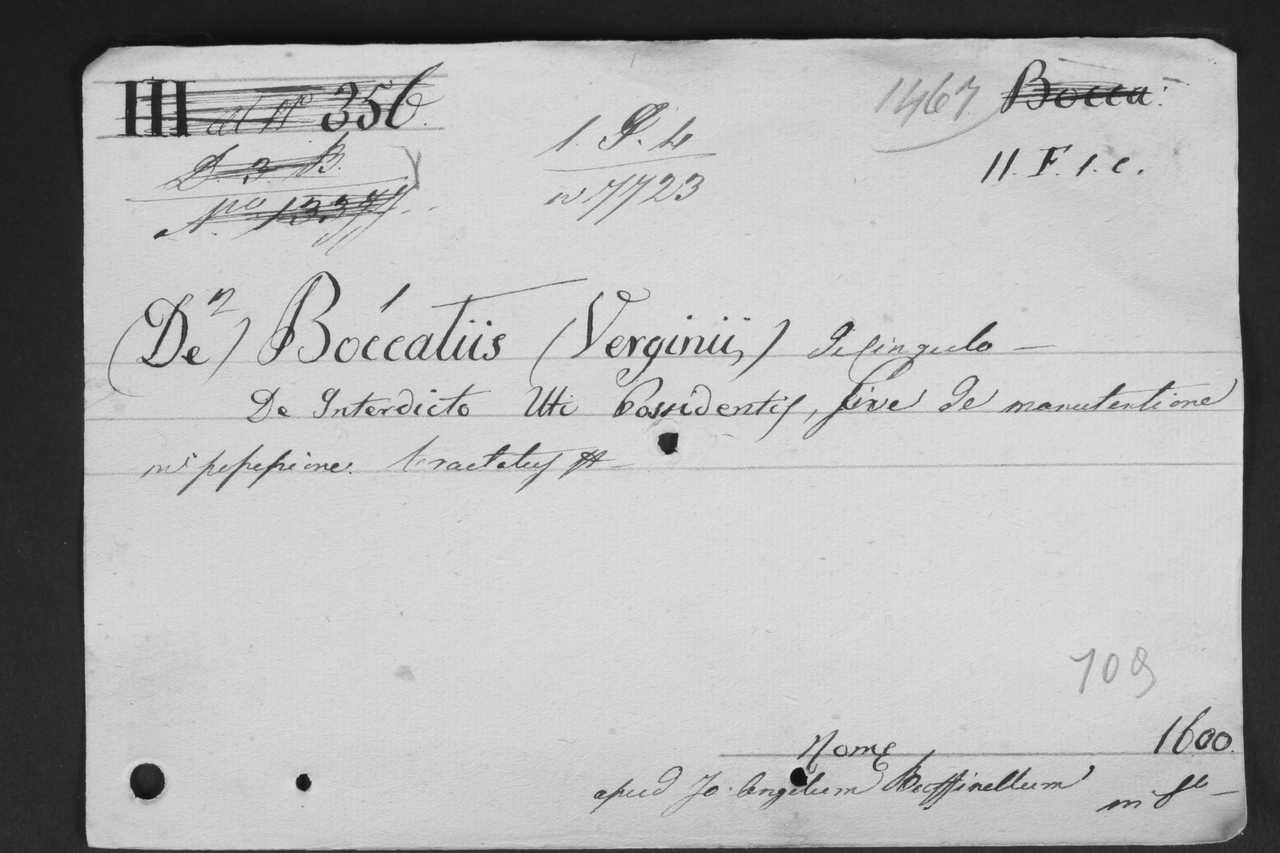 III ad Nº 356.
D. 3. B.
Nro 1337
1. P. 4
n 7723
1467.
Bocca.
11. F. 1. c.
(De) Boccatiis (Verginii,) de Cingulo —
De Interdicto Uti Possidentis, sive de manutentione
in possessione. tractatus
709
Rome, 1600.
apud Jo. Angelum Ruffinellum in fo —